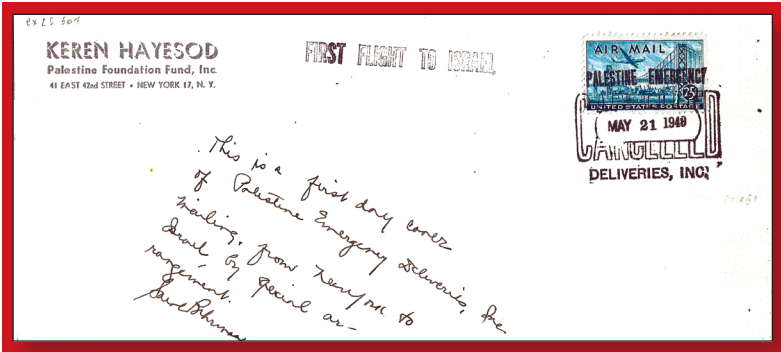 ex LS 601
KEREN HAYESOD
Palestine Foundation Fund, Inc.
41 EAST 42nd STREET • NEW YORK 17, N. Y.
FIRST FLIGHT TO ISRAEL
AIR MAIL
PALESTINE EMERGENCY
25¢
UNITED STATES POSTAGE
MAY 21 1948
CANCELLED
DELIVERIES, INC.
This is a first day cover
of Palestine Emergency Deliveries, Inc
mailing, from New York to
Israel by special ar-
rangement.